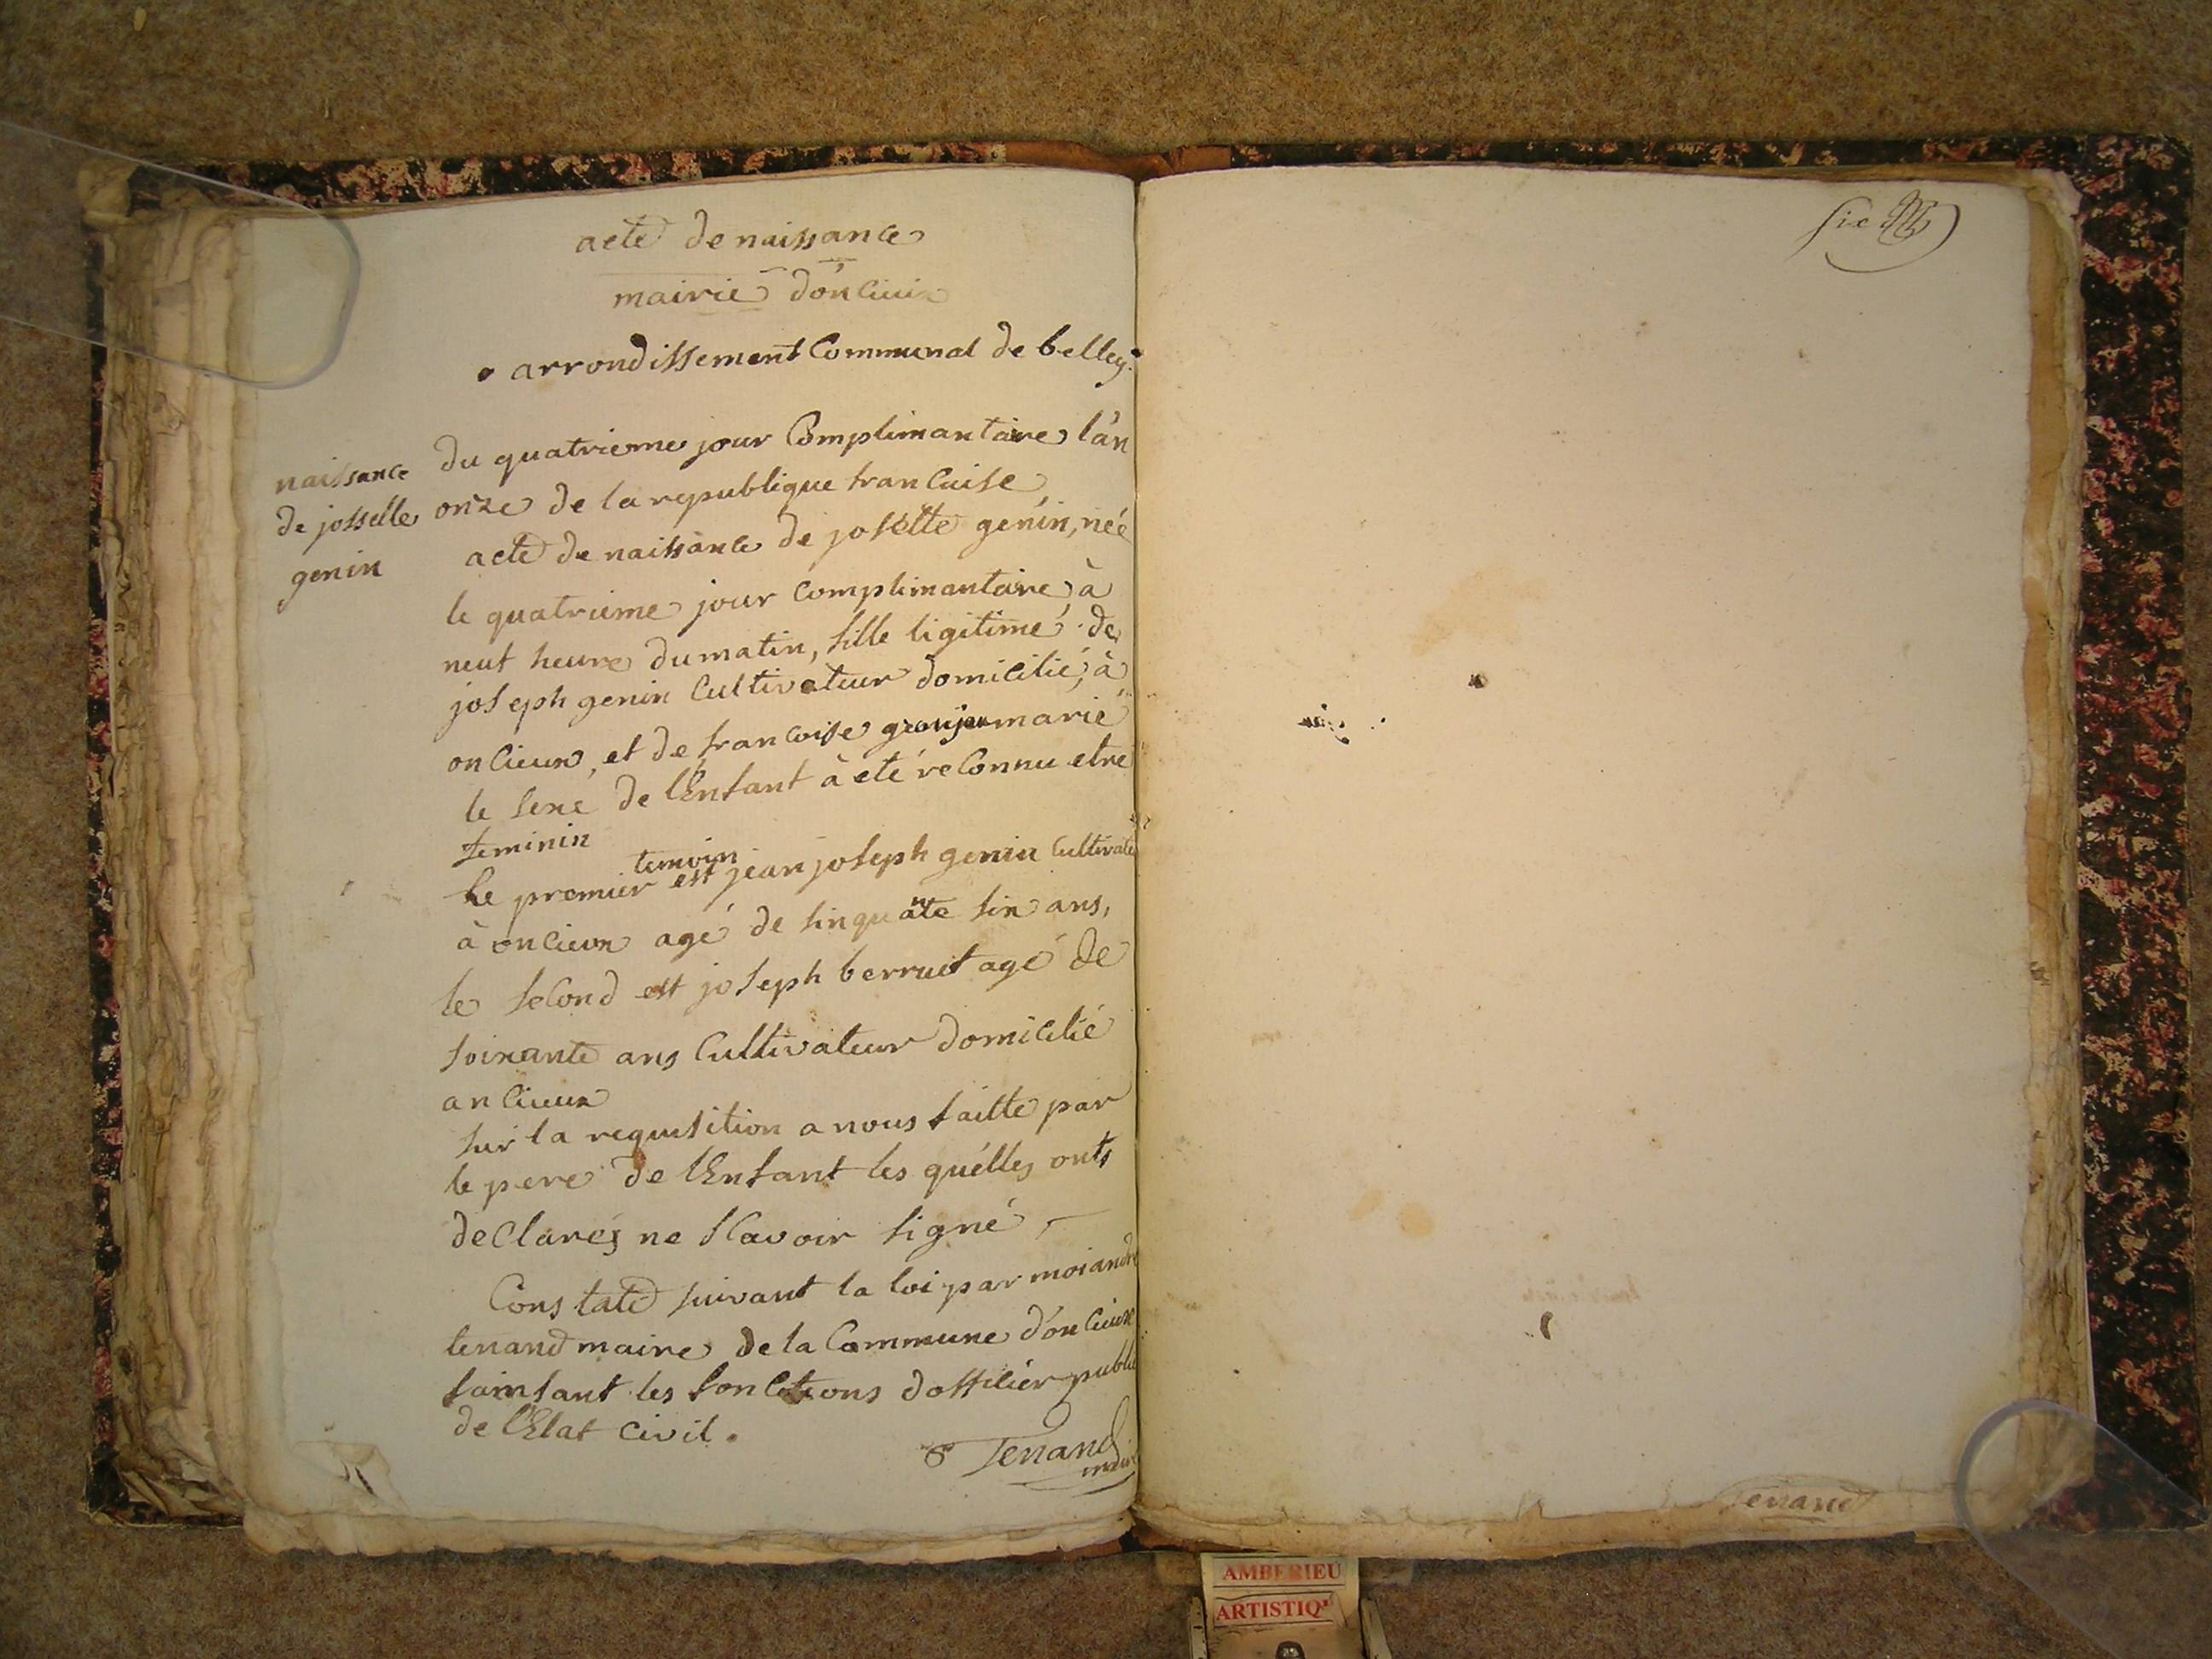 acte de naissance
mairie d'oncieux
arrondissement Communal de belley.
naissance
de jossette
genin
du quatrieme jour Complimantaire l'an
onze de la republique francaise
acte de naissance de josette genin, née
le quatrieme jour complimantaire à
neuf heure du matin, fille ligitime de
joseph genin Cultivateur domicilié, à
oncieux, et de francoise marié
le sexe de l'Enfant à eté reconnu etre
feminin
temoin
Le premier est jean joseph genin Cultivate
à oncieux agé de sinquante six ans,
le second est joseph berruet agé de
soixante ans Cultivateur domicilié
a ncieux
sur la requisition a nous faitte par
le pere de l'Enfant les quélles onts
declarés ne scavoir signé,
Constaté suivant la loi par moi andré
tenand maire de la Commune d'oncieux
faissant les fonctions d'officier public
de l'Etat civil.
Tenand
maire
six
Tenand
AMBERIEU
ARTISTIQ'